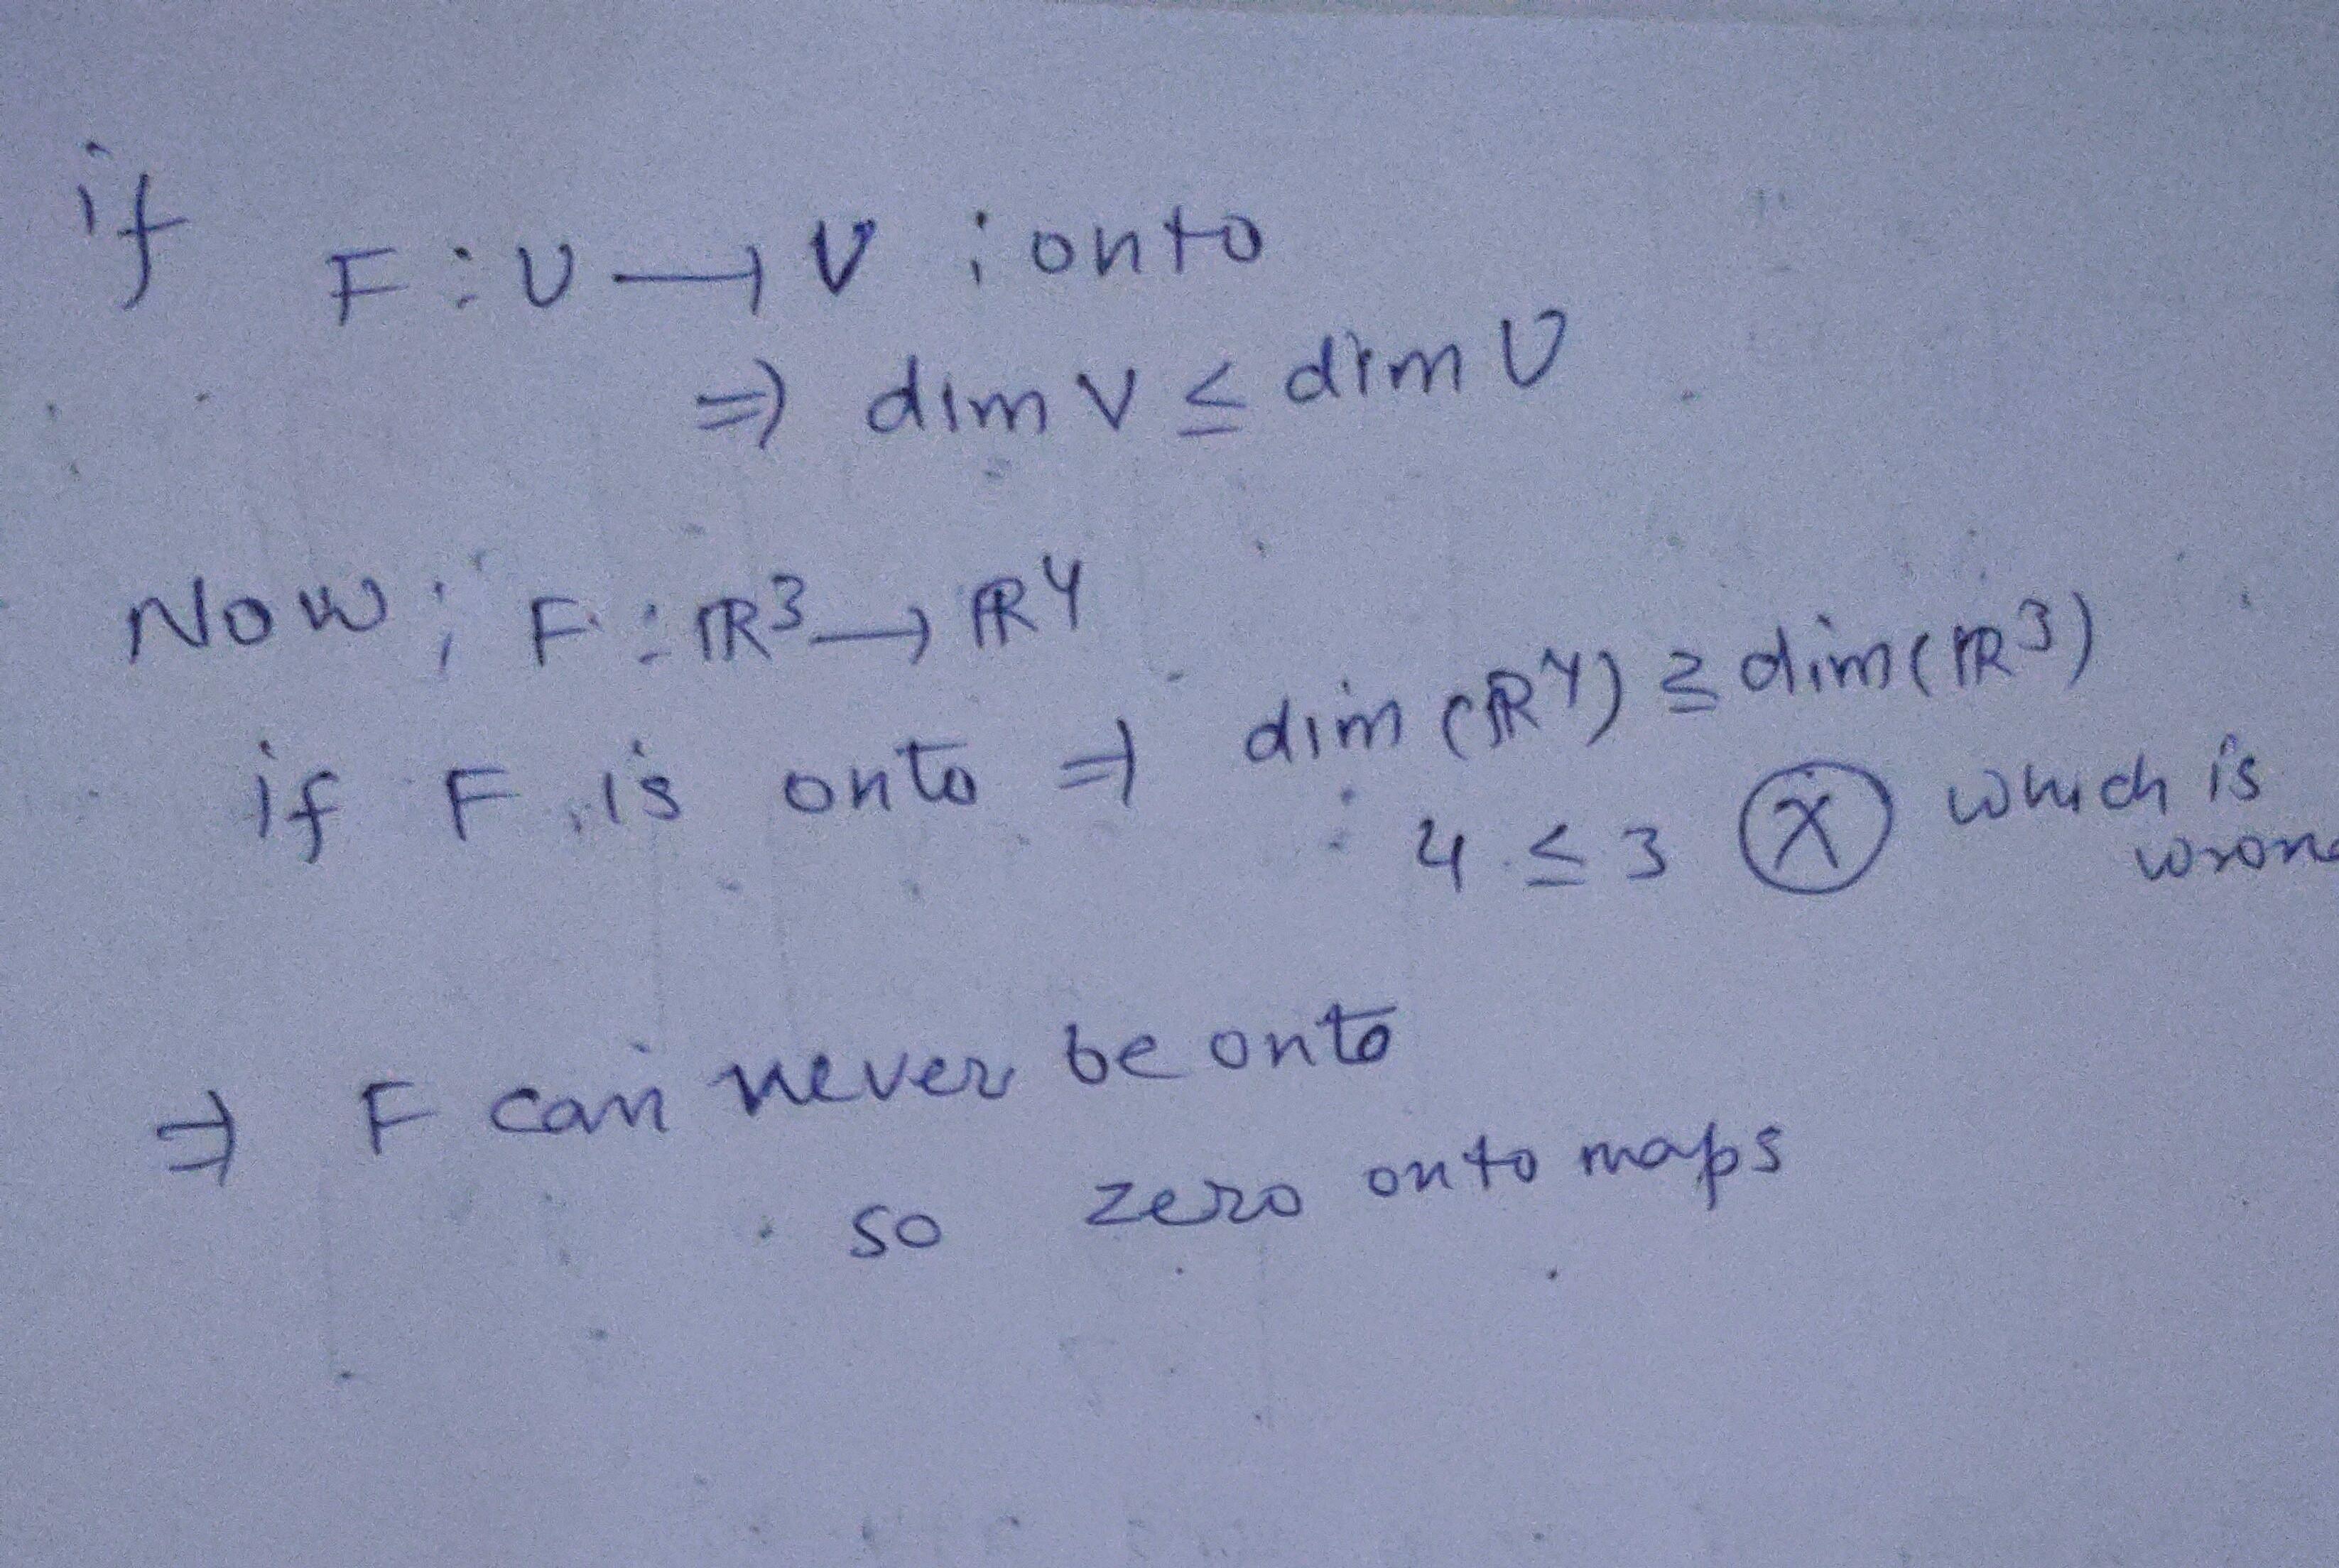 if F : U → V ; onto
⇒ dim V ≤ dim U
Now ; F : ℝ³ → ℝ⁴
if F is onto ⇒ dim (ℝ⁴) ≥ dim (ℝ³)
4 ≤ 3 ⓧ which is
⇒ F can never be onto
so zero onto maps